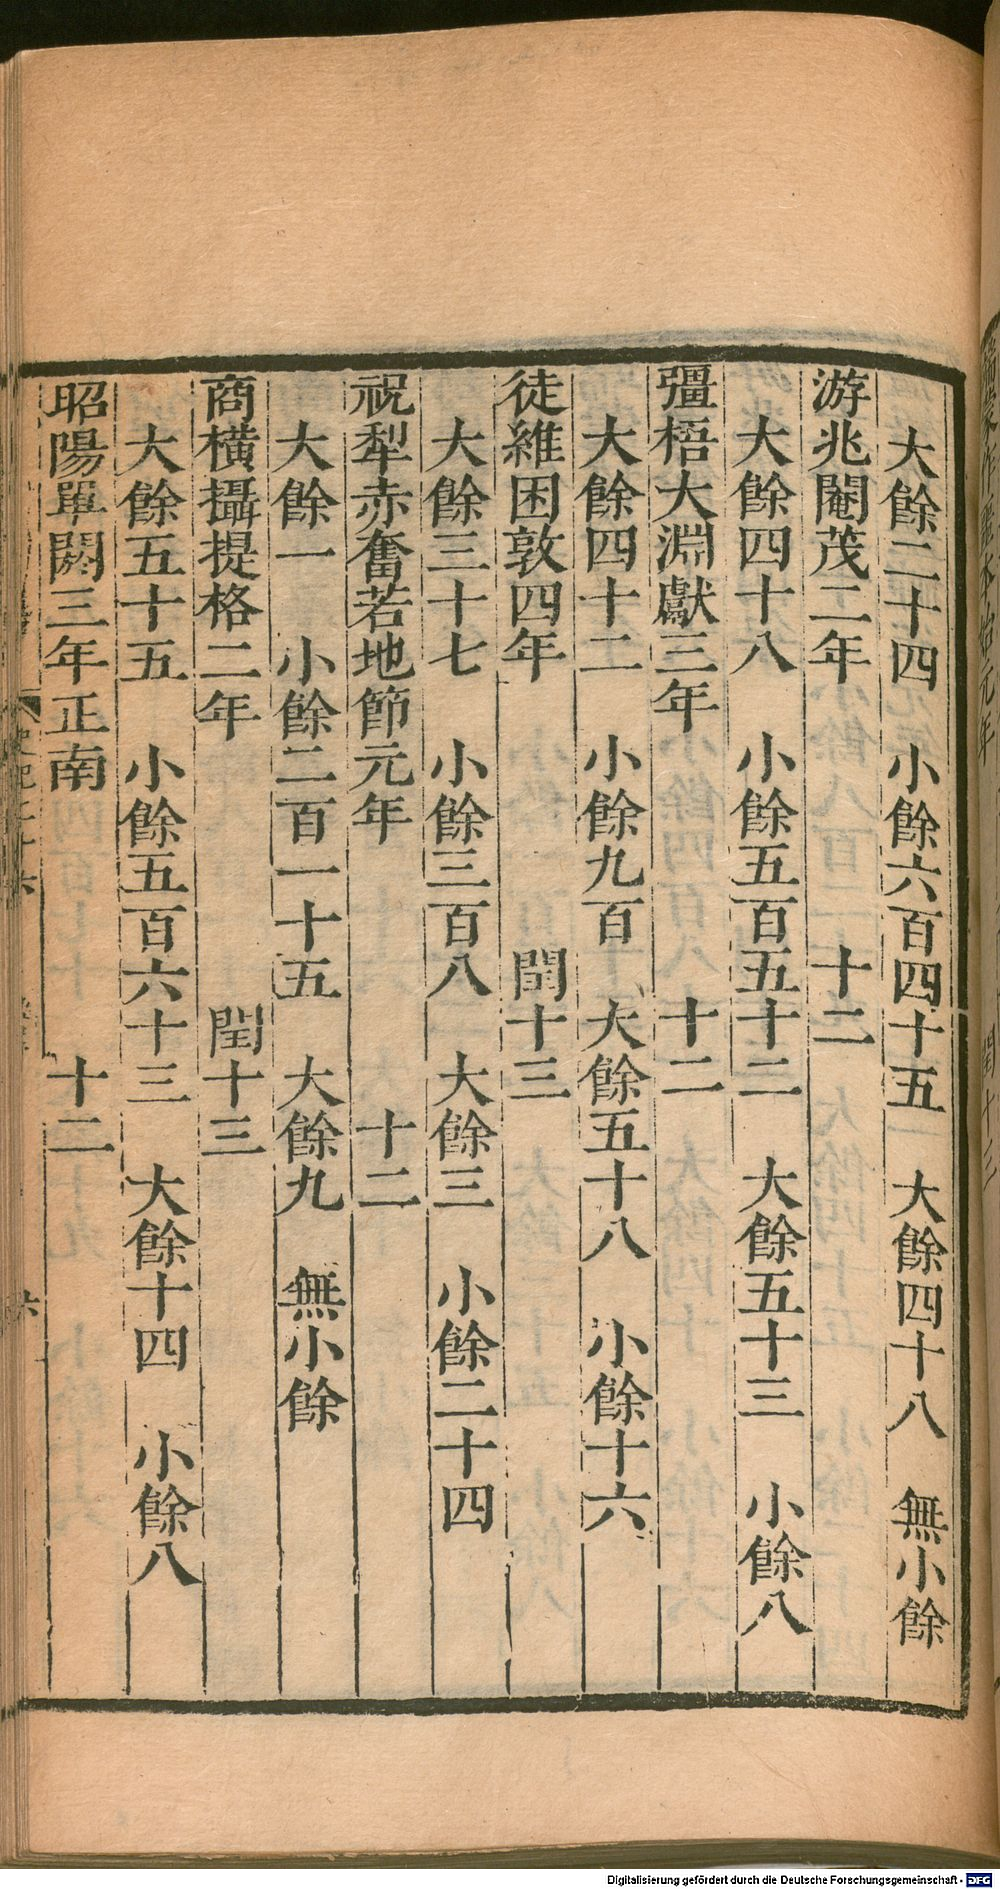 大餘二十四　小餘六百四十五　大餘四十八　無小餘
游兆閹茂二年　十二
大餘四十八　小餘五百五十二　大餘五十三　小餘八
彊梧大淵獻三年　十二
大餘四十二　小餘九百　大餘五十八　小餘十六
徒維困敦四年　閏十三
大餘三十七　小餘三百八　大餘三　小餘二十四
祝犁赤奮若地節元年　十二
大餘一　小餘二百一十五　大餘九　無小餘
商橫攝提格二年　閏十三
大餘五十五　小餘五百六十三　大餘十四　小餘八
昭陽單閼三年正南　十二
Digitalisierung gefördert durch die Deutsche Forschungsgemeinschaft - DFG